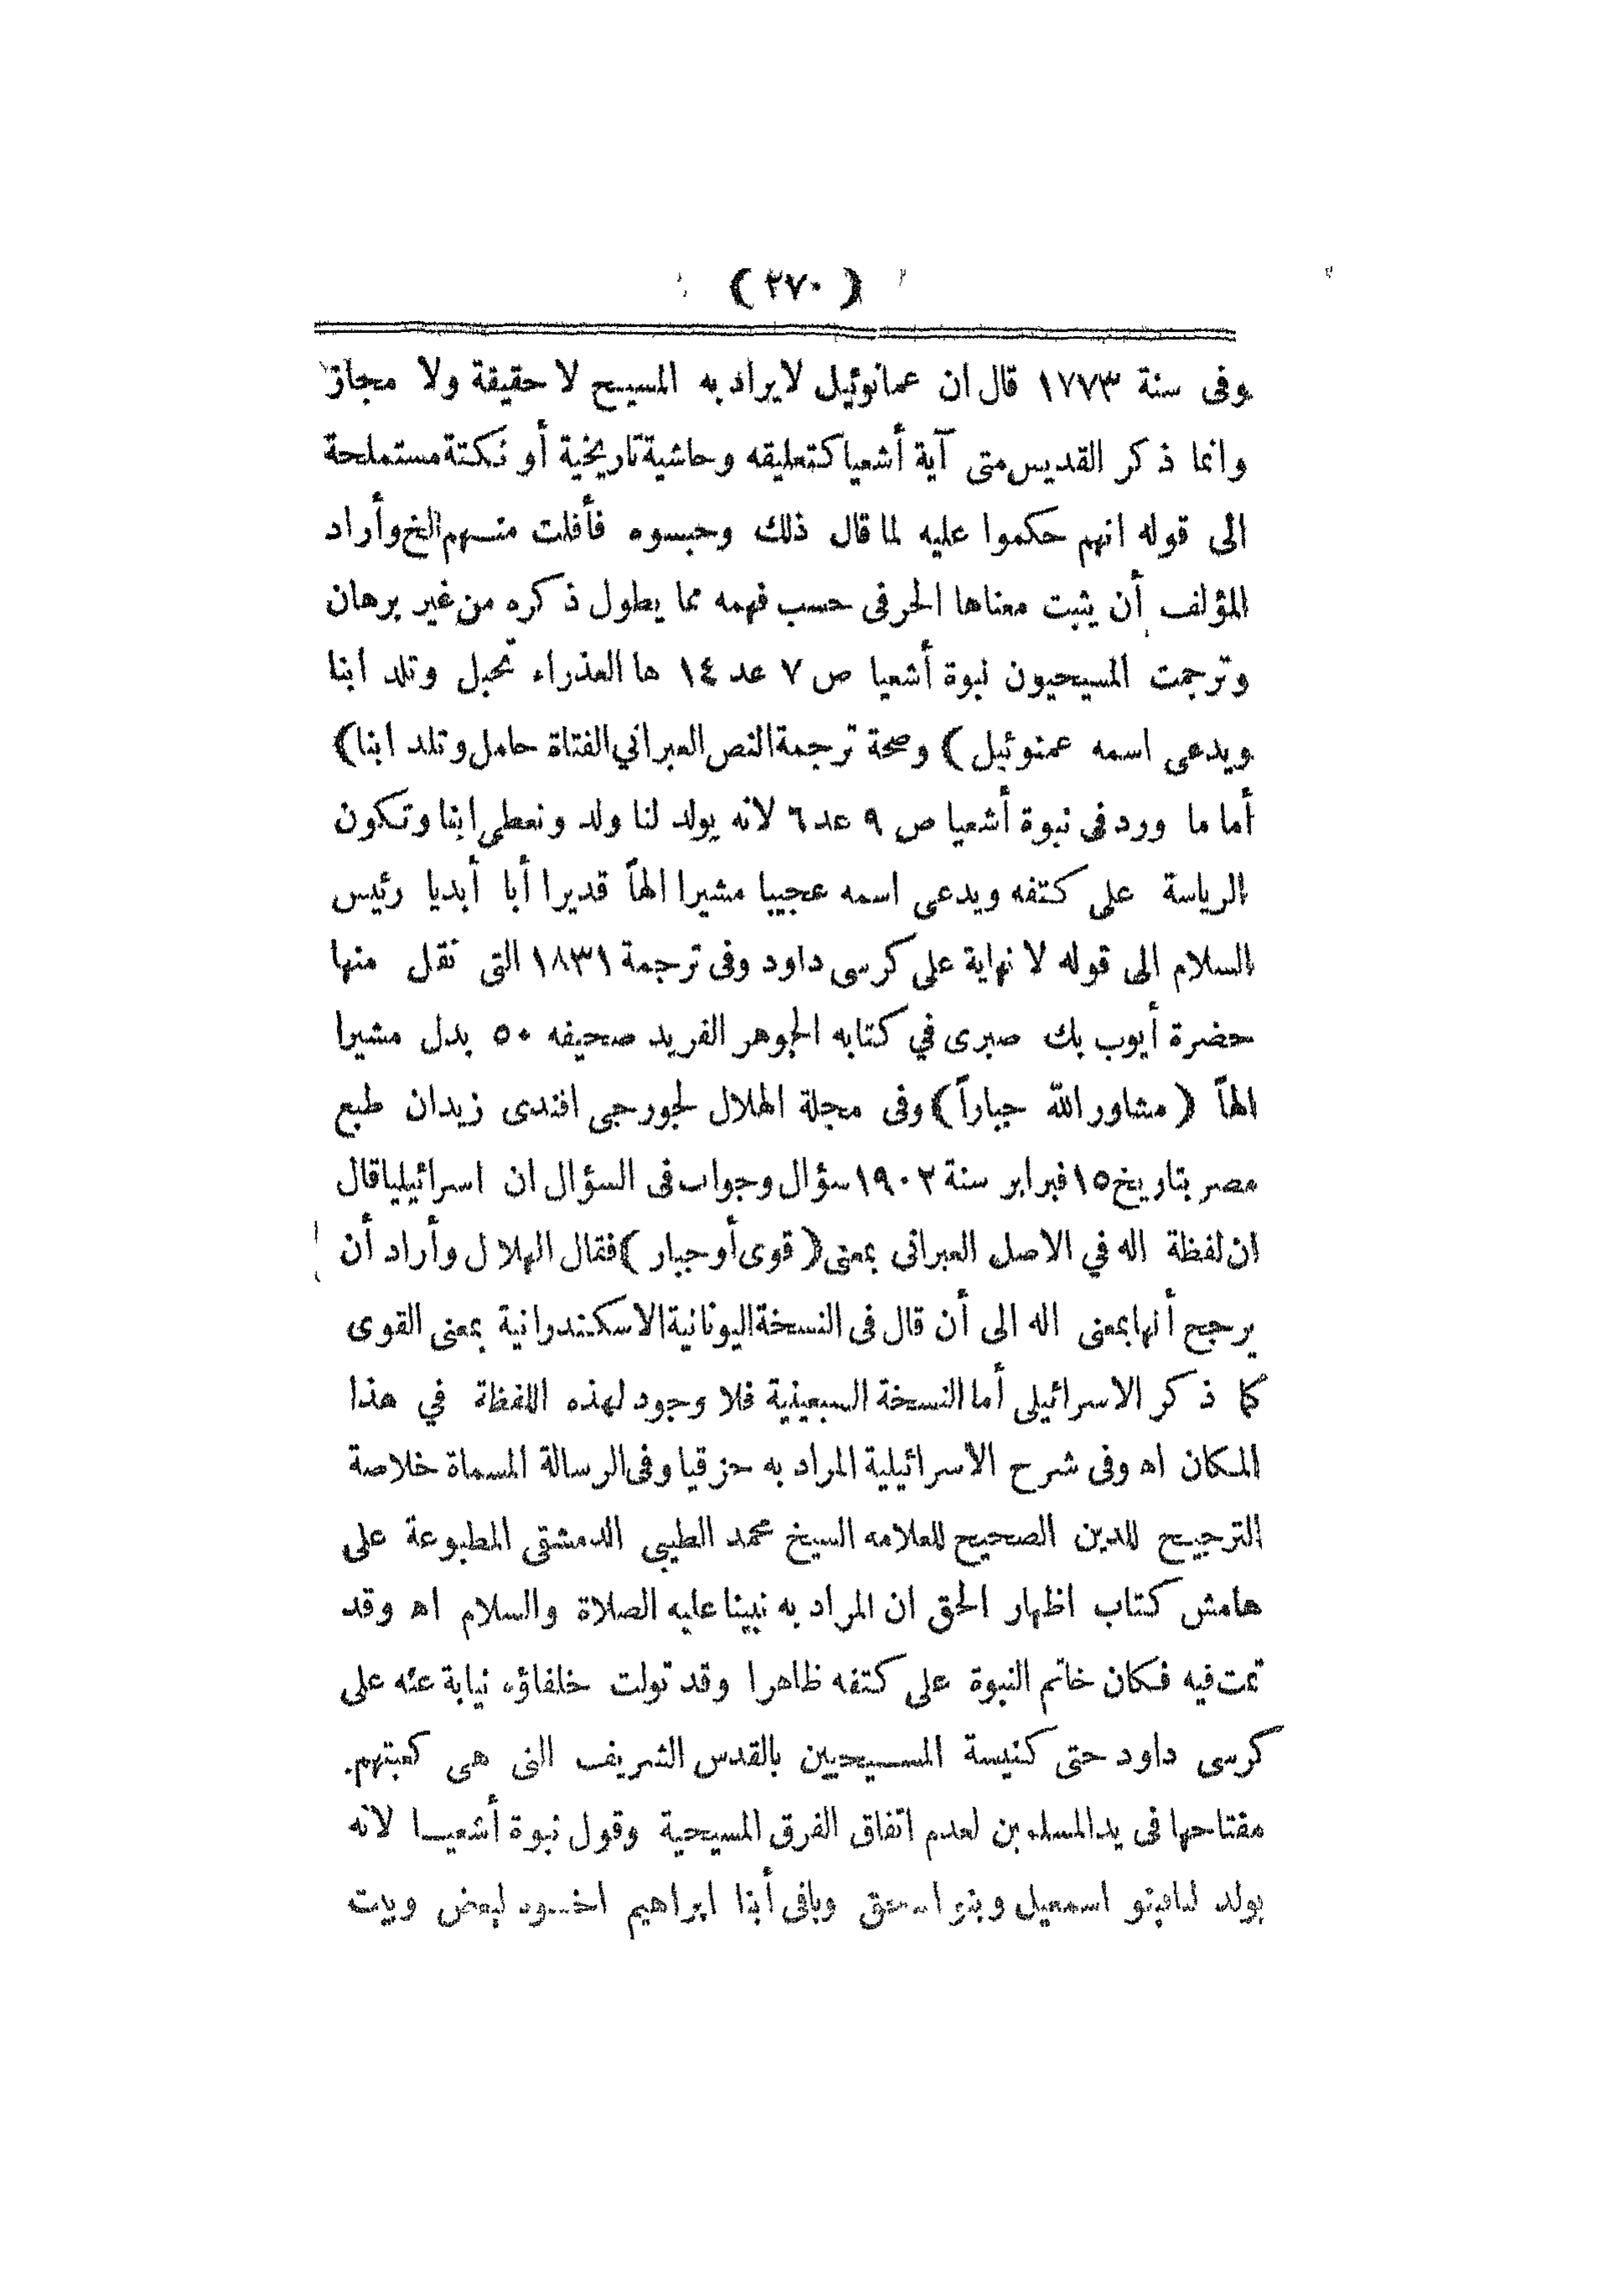 ( ٢٧٠ )
وفى سنة ١٧٧٣ قال ان عمانوئيل لا يراد به المسيح لا حقيقة ولا مجاز
وانما ذكر القديس متى آية أشعيا كتعليقه وحاشية تاريخية أو نكتة مستملحة
الى قوله انهم حكموا عليه لما قال ذلك وحبسوه فأفلت منهم الخ وأراد
المؤلف أن يثبت معناها الحرفى حسب فهمه مما يطول ذكره من غير برهان
وترجمت المسيحيون نبوة أشعيا ص ٧ عد ١٤ ها العذراء تحبل وتلد ابنا
ويدعى اسمه عمنوئيل ) وصحة ترجمة النص العبراني الفتاة حامل وتلد ابنا )
أما ما ورد فى نبوة أشعيا ص ٩ عد ٦ لانه يولد لنا ولد ونعطى ابنا وتكون
الرياسة على كتفه ويدعى اسمه عجيبا مشيرا الهاً قديرا أبا أبديا رئيس
السلام الى قوله لا نهاية على كرسى داود وفى ترجمة ١٨٣١ التى نقل منها
حضرة أيوب بك صبرى في كتابه الجوهر الفريد صحيفه ٥٠ بدل مشيرا
الهاً ( مشاور الله جباراً ) وفى مجلة الهلال لجورجى افندى زيدان طبع
مصر بتاريخ ١٥ فبراير سنة ١٩٠٢ سؤال وجواب فى السؤال ان اسرائيليا قال
ان لفظة اله في الاصل العبرانى بمعنى ( قوى أو جبار ) فقال الهلال وأراد أن
يرجح أنها بمعنى اله الى أن قال فى النسخة اليونانية الاسكندرانية بمعنى القوى
كما ذكر الاسرائيلى أما النسخة السبعينية فلا وجود لهذه اللفظة في هذا
المكان اه وفى شرح الاسرائيلية المراد به حزقيا وفى الرسالة المسماة خلاصة
الترجيح للدين الصحيح للعلامه الشيخ محمد الطيبي الدمشقى المطبوعة على
هامش كتاب اظهار الحق ان المراد به نبينا عليه الصلاة والسلام اه وقد
تمت فيه فكان خاتم النبوة على كتفه ظاهرا وقد تولت خلفاؤه نيابة عنه على
كرسى داود حتى كنيسة المسيحيين بالقدس الشريف التى هى كعبتهم.
مفتاحها فى يد المسلمين لعدم اتفاق الفرق المسيحية وقول نبوة أشعيا لانه
يولد لنا فبنو اسمعيل وبنو اسحق وباقى أبنا ابراهيم اخوه لبعض وبيت